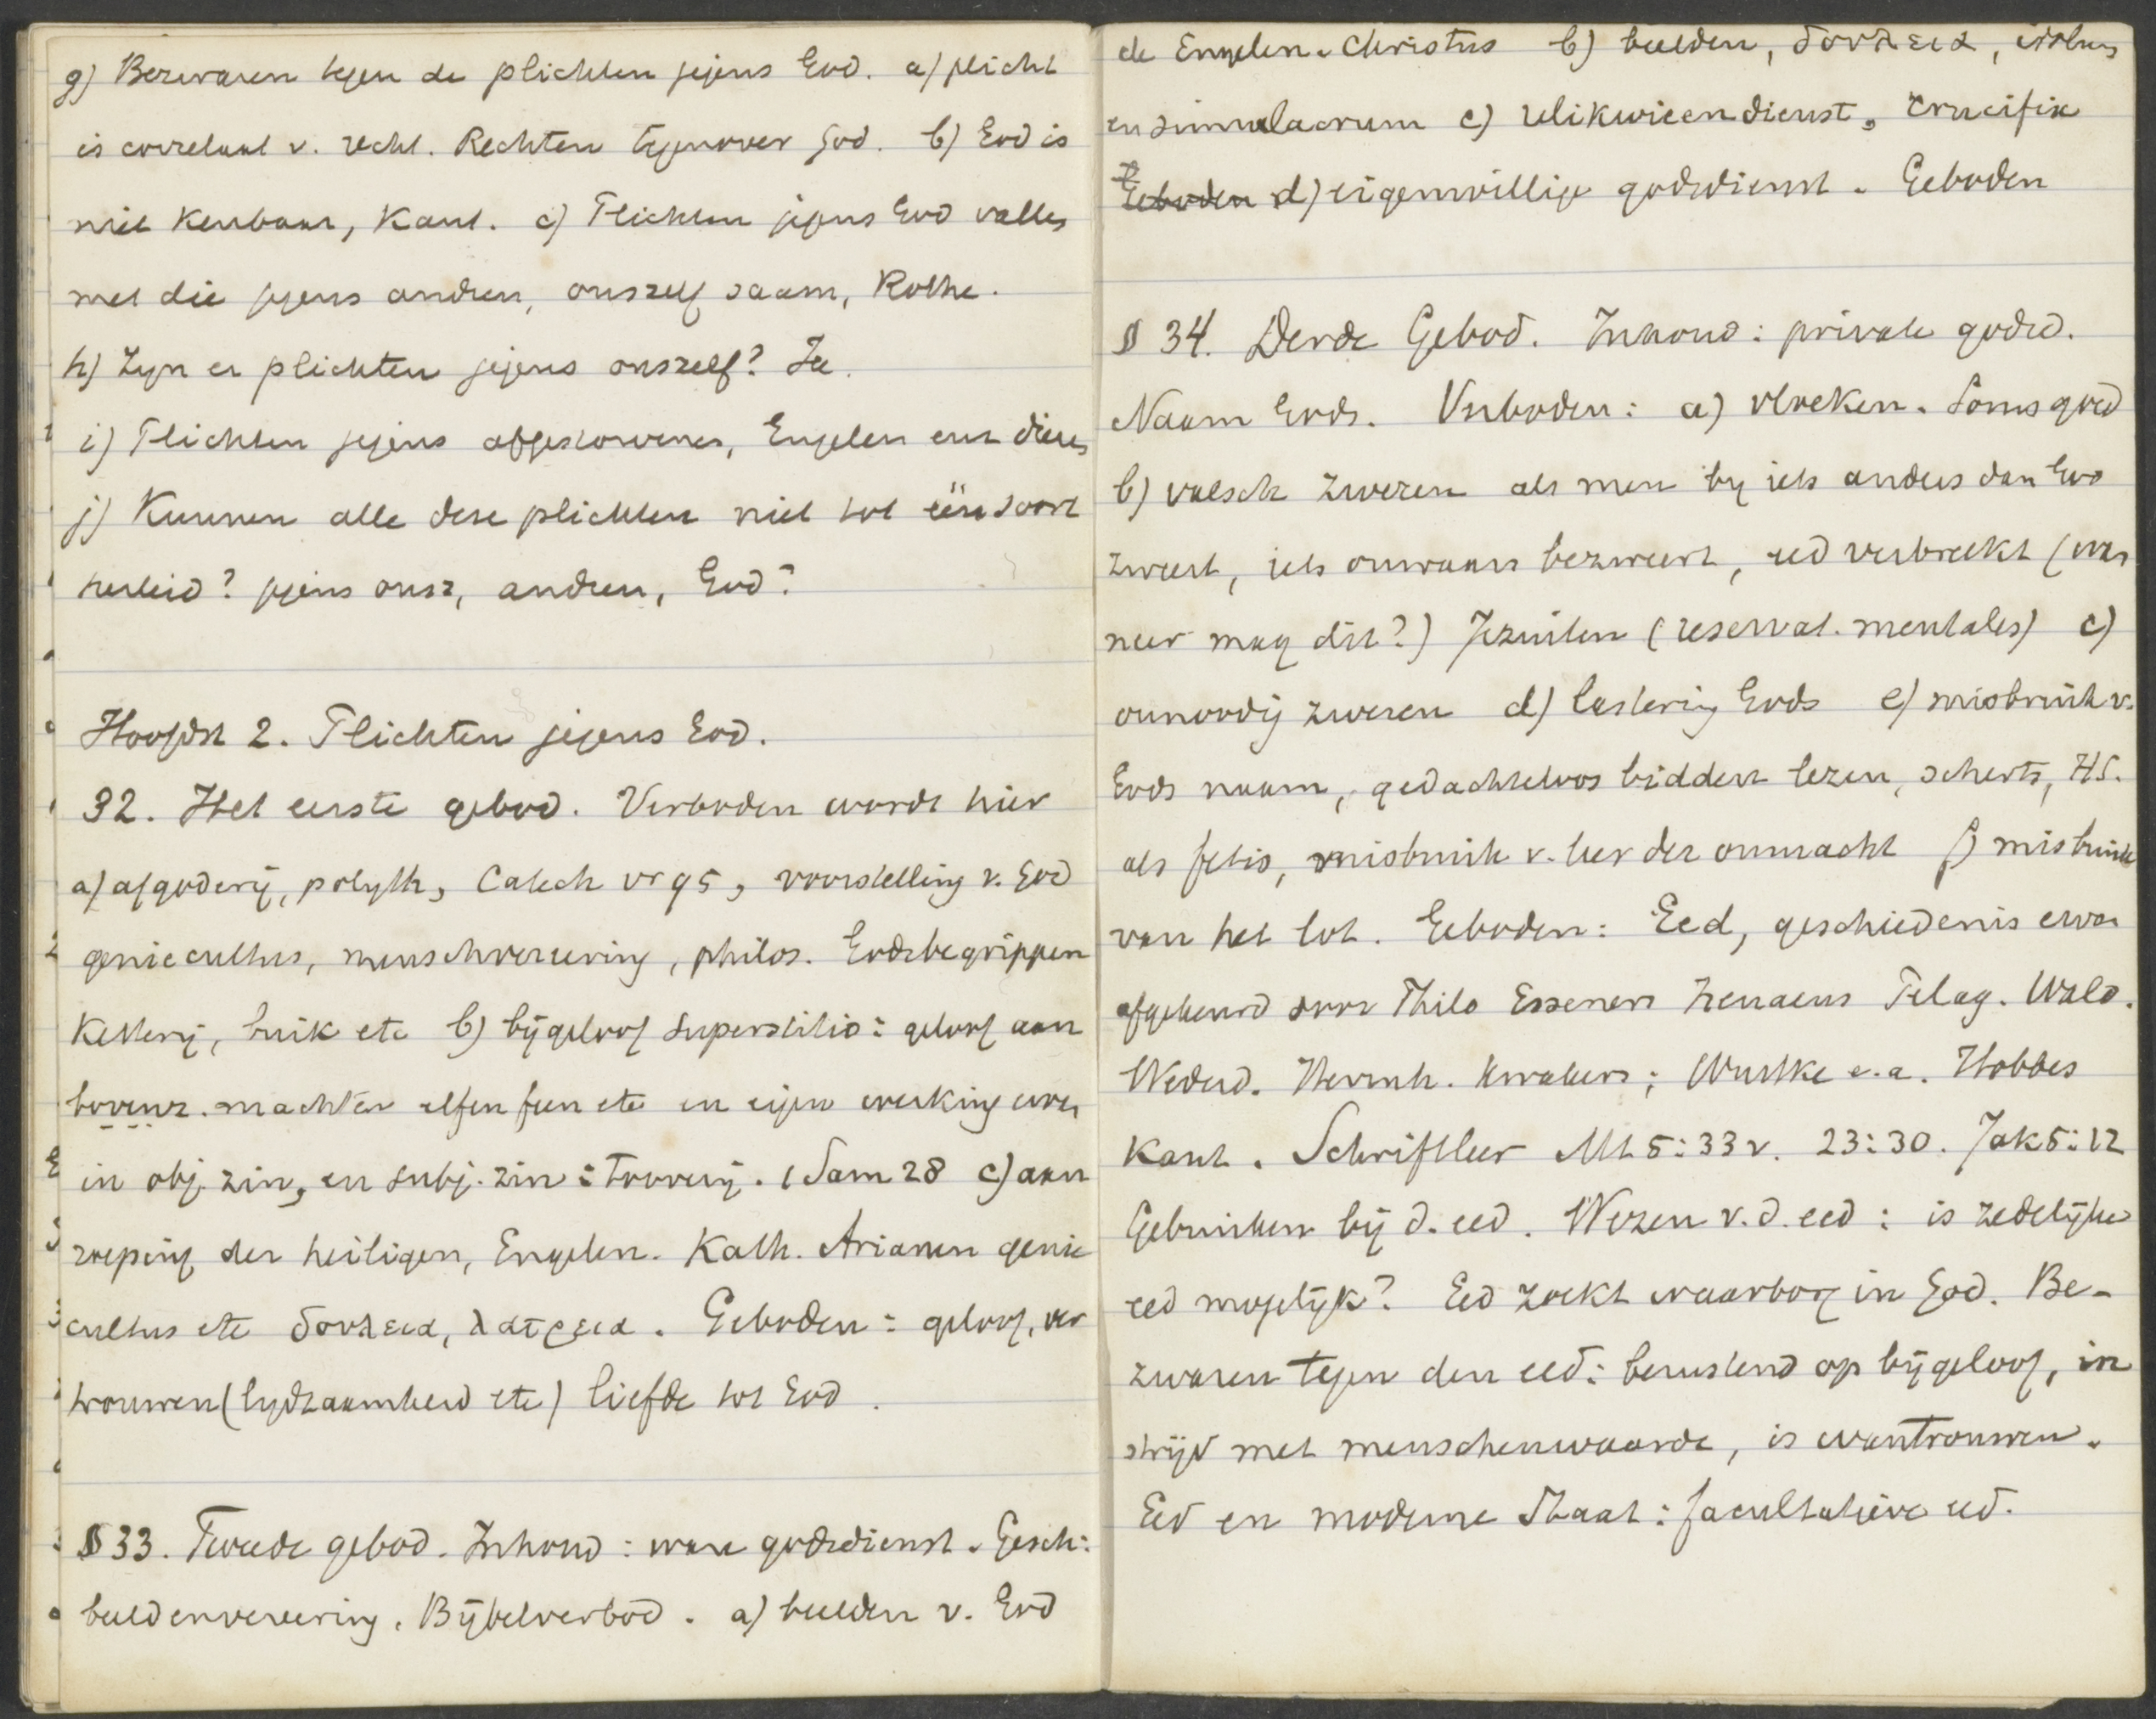 g) Bezwaren tegen de plichten jegens God. a) plicht
is correlaat v. recht. Rechten tegenover God. b) God is
niet kenbaar, Kant. c) Plichten jegens God vallen
met die jegens andren, onszelf saam, Rothe.
h) Zyn er plichten jegens onszelf? Ja.
i) Plichten jegens afgestorvenen, Engelen enz dieren
j) Kunnen alle deze plichten niet tot één soort
herleid? jegens onsz, andren, God?
Hoofdst 2. Plichten jegens God.
32. Het eerste gebod. Verboden wordt hier
a) afgoderij, polyth, Catech vr 95, voorstelling v. God
geniecultus, menschvereering, philos. Godsbegrippen
Ketterij, buik etc b) bijgeloof superstitio: geloof aan
bovenz. machten elfen feen etc en eigen werking ervan
in obj. zin, en subj. zin: toverij. 1 Sam 28 c) aan
roeping der heiligen, Engelen. Kath. Arianen genie
cultus etc δουλεια, λατρεια. Geboden: geloof, ver
trouwen (lydzaamheid etc) liefde tot God.
§ 33. Tweede gebod. Inhoud: ware godsdienst. Gesch:
beeldenvereering. Bijbelverbod. a) beelden v. God
de Engelen. Christus b) beelden, δουλεια, idolum
en simulacrum c) relikwieendienst, Crucifix
Geboden d) eigenwillige godsdienst. Geboden
§ 34. Derde Gebod. Inhoud: private godsd.
Naam Gods. Verboden: a) vloeken. Soms goed
b) valsch zweren als men by iets anders dan God
zweert, iets onwaars bezweert, eed verbreekt (wan
neer mag dit?) Jezuiten (reservat. mentales) c)
onnoodig zweren d) lastering Gods e) misbruik v.
Gods naam, gedachteloos bidden lezen, scherts, H.S.
als fetis, misbruik v. leer der onmacht f) misbruik
van het lot. Geboden: Eed, geschiedenis ervan
afgekeurd door Philo Essenen Irenaeus Pelag. Wald.
Wederd. Hernnh. Kwakers; Wuttke e.a. Hobbes
Kant. Schriftleer Mt 5:33v. 23:30. Jak 5:12
Gebruiken bij d. eed. Wezen v.d. eed: is zedelijke
eed mogelijk? Eed zoekt waarborg in God. Be-
zwaren tegen den eed: berustend op bijgeloof, in
strijd met menschenwaarde, is wantrouwen.
Eed en moderne Staat: facultatieve eed.